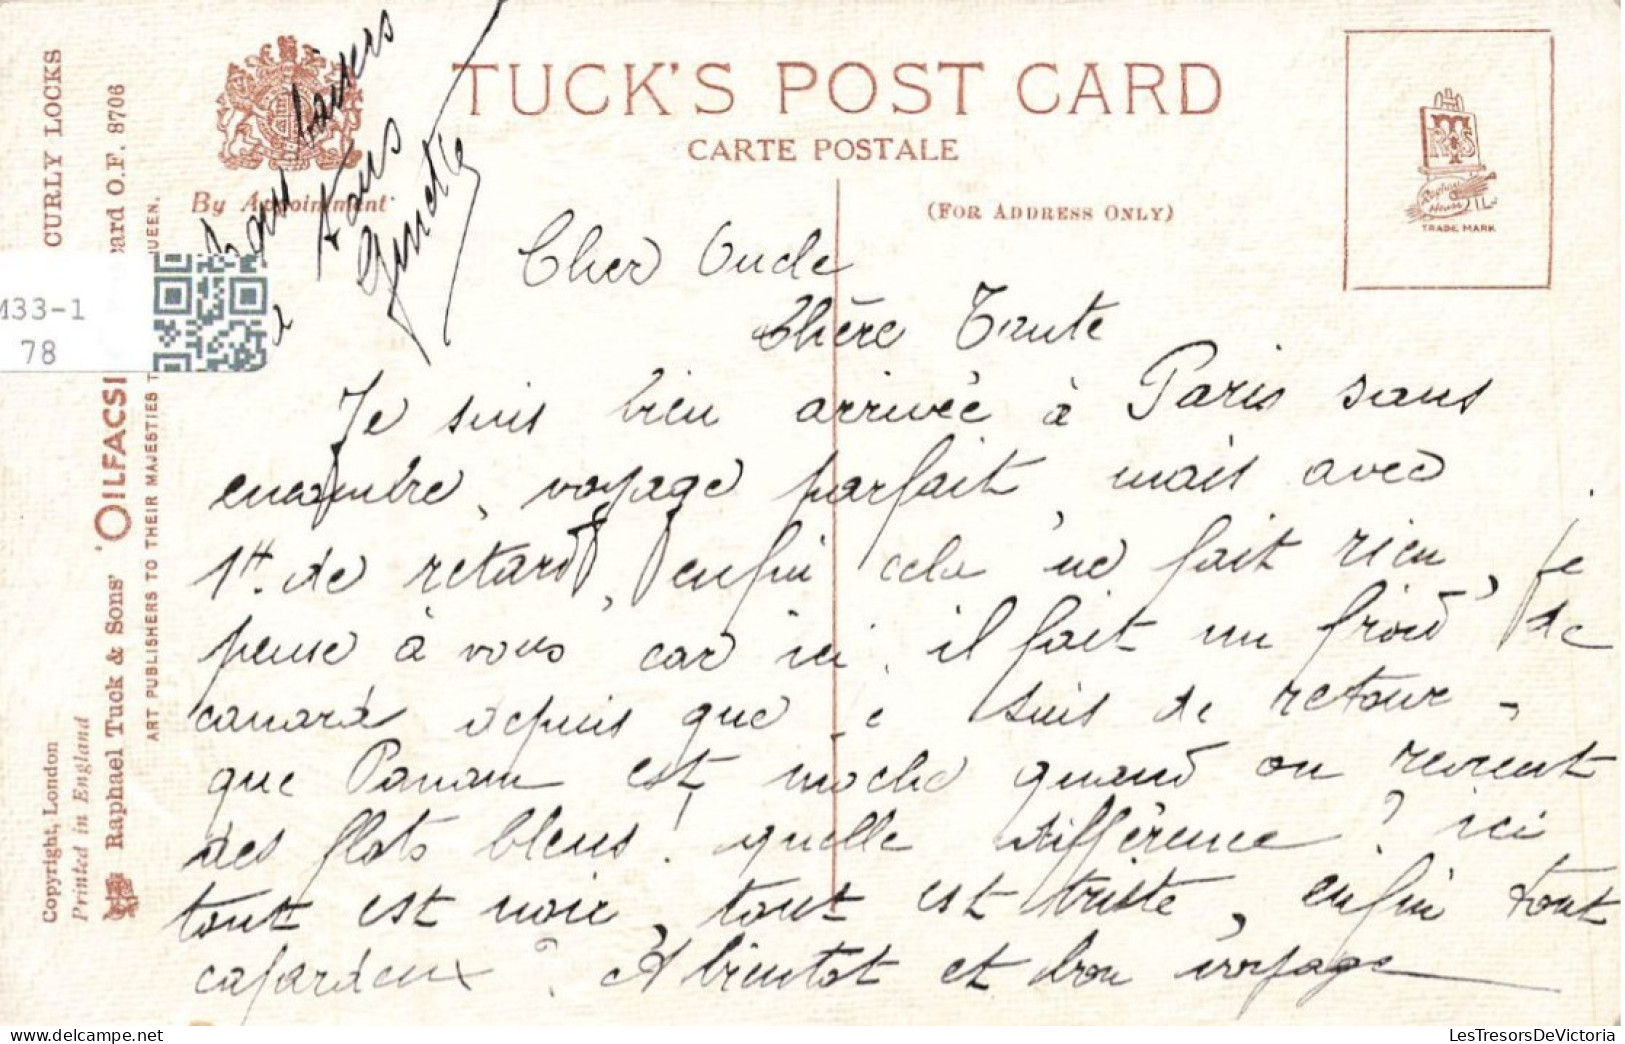 TUCK'S POST CARD
CARTE POSTALE
(FOR ADDRESS ONLY)
By Appointment
TRADE MARK
CURLY LOCKS
ard O.F. 8706
UEEN.
M33-1
78
"OILFACSI
Raphael Tuck & Sons'
ART PUBLISHERS TO THEIR MAJESTIES T
Copyright, London
Printed in England
baisers
à tous
Ginette
Cher Oncle
Chère Tante
Je suis bien arrivée à Paris sans
encombre, voyage parfait, mais avec
1H. de retard, enfin cela ne fait rien, je
pense à vous car ici, il fait un froid de
canard depuis que je suis de retour,
que Panam est moche quand on revient
des flots bleus! quelle différence? ici
tout est noir, tout est triste, enfin tout
cafardeux? A bientot et bon voyage
LesTresorsDeVictoria